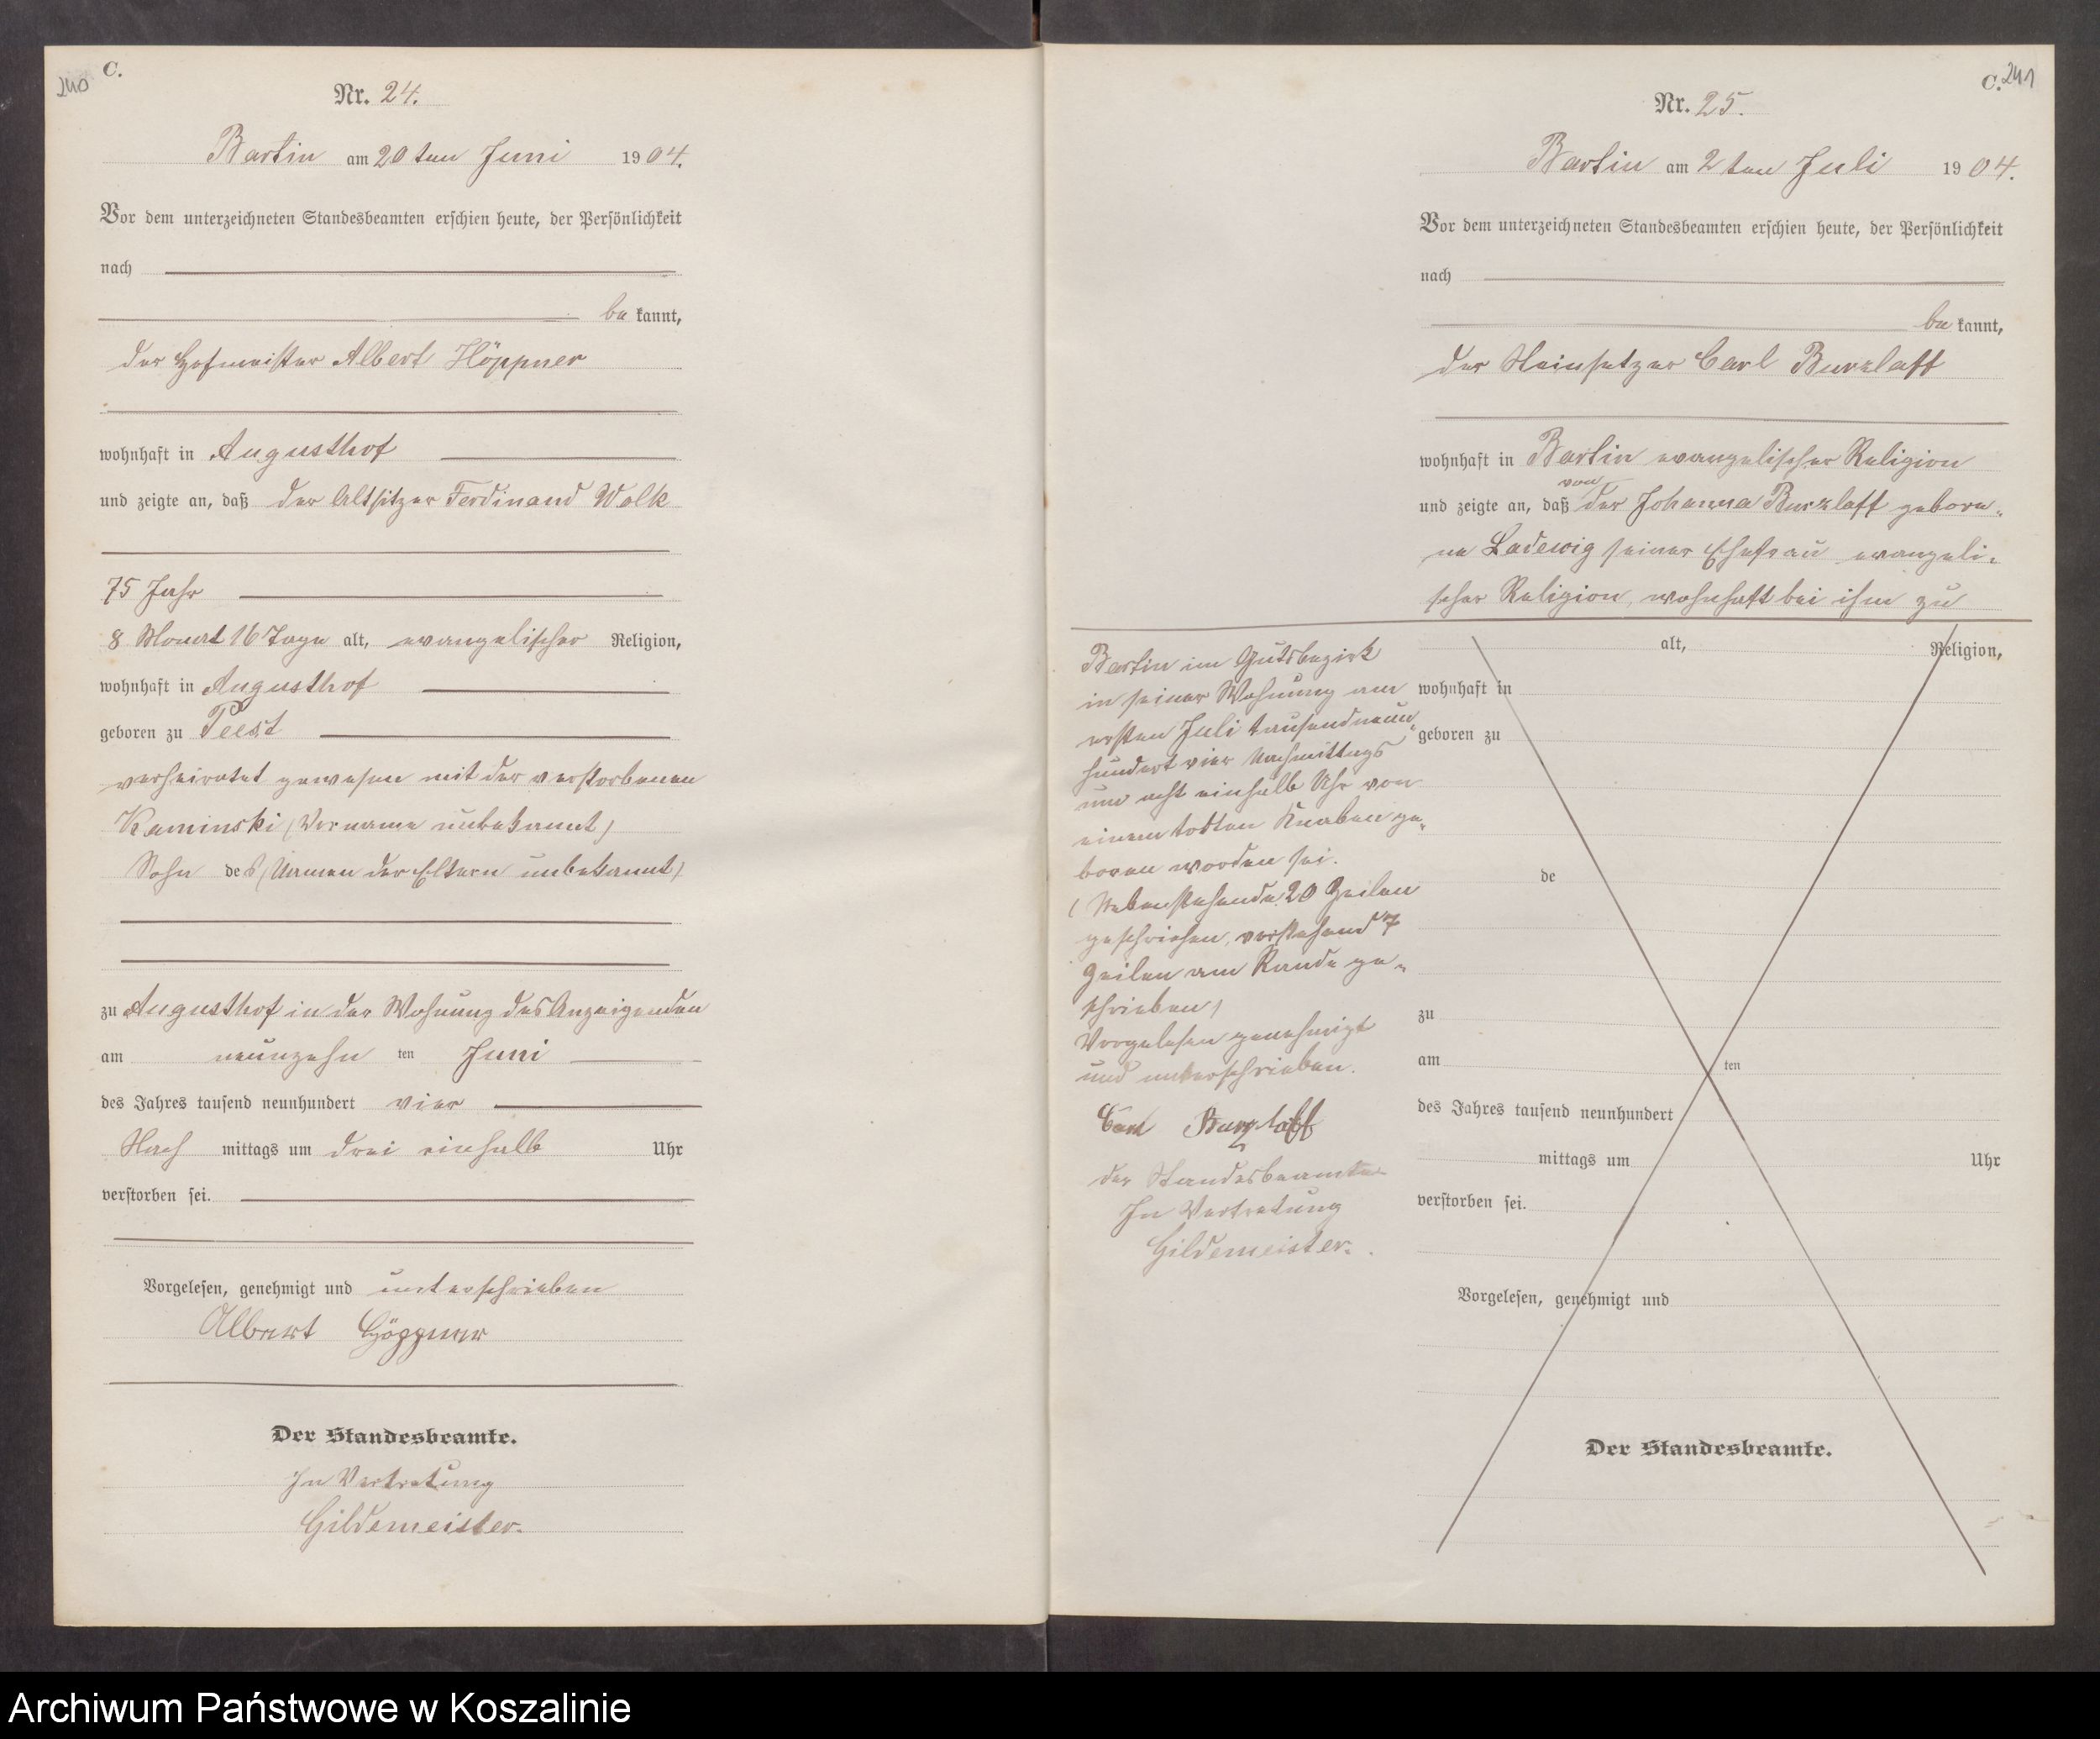 240 C.
Nr. 24.
Bartin am 20 ten Juni 1904.
Vor dem unterzeichneten Standesbeamten erschien heute, der Persönlichkeit
nach
be kannt,
der Hofmeister Albert Höppner
wohnhaft in Augusthof
und zeigte an, daß der Altsitzer Ferdinand Wolk
75 Jahr
8 Monat 16 Tage alt, evangelischer Religion,
wohnhaft in Augusthof
geboren zu Peest
verheiratet gewesen mit der verstorbenen
Kaminski (Vorname unbekannt)
Sohn des (Namen der Eltern unbekannt)
zu Augusthof in der Wohnung des Anzeigenden
am neunzehn ten Juni
des Jahres tausend neunhundert vier
Nach mittags um drei einhalb Uhr
verstorben sei.
Vorgelesen, genehmigt und unterschrieben
Albert Höppner
Der Standesbeamte.
In Vertretung
Gildemeister.
C. 241
Nr. 25.
Bartin am 2 ten Juli 1904.
Vor dem unterzeichneten Standesbeamten erschien heute, der Persönlichkeit
nach
be kannt,
der Steinsetzer Carl Burzlaff
wohnhaft in Bartin evangelischer Religion
und zeigte an, daß von der Johanna Burzlaff gebore-
ne Ladewig seiner Ehefrau evangeli-
scher Religion, wohnhaft bei ihm zu
Bartin im Gutsbezirk
in seiner Wohnung am
ersten Juli tausendneun-
hundert vier Nachmittags
um acht einhalb Uhr von
einem todten Knaben ge-
boren worden sei.
(Nebenstehende 20 Zeilen
geschrieben, vorstehend 7
Zeilen am Rande ge-
schrieben)
Vorgelesen genehmigt
und unterschrieben.
Carl Burzlaff
der Standesbeamte
In Vertretung
Gildemeister.
alt, Religion,
wohnhaft in
geboren zu
de
zu
am ten
des Jahres tausend neunhundert
mittags um Uhr
verstorben sei.
Vorgelesen, genehmigt und
Der Standesbeamte.
Archiwum Państwowe w Koszalinie